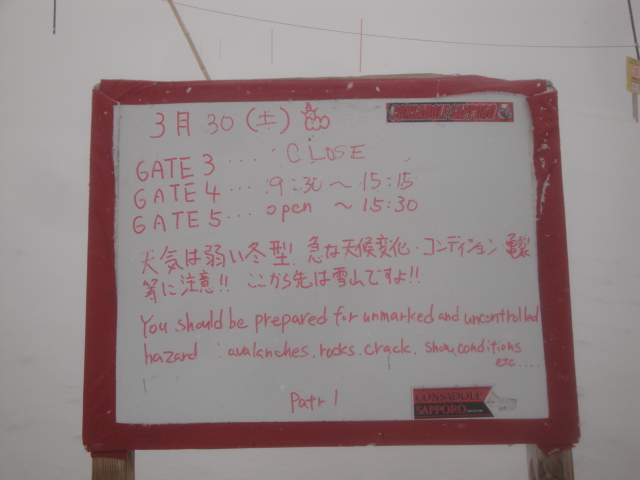 3月30(土)
CONSADOLE SAPPORO
GATE 3 ････ CLOSE
GATE 4 ･･･ 9:30 ～ 15:15
GATE 5 ･･･ open ～ 15:30
天気は弱い冬型! 急な天候変化･コンディション 亀裂
等に注意!! ここから先は雪山ですよ!!
You should be prepared for unmarked and uncontrolled
hazard : avalanches. rocks. crack. snow conditions
etc ....
Patr l
CONSADOLE
SAPPORO